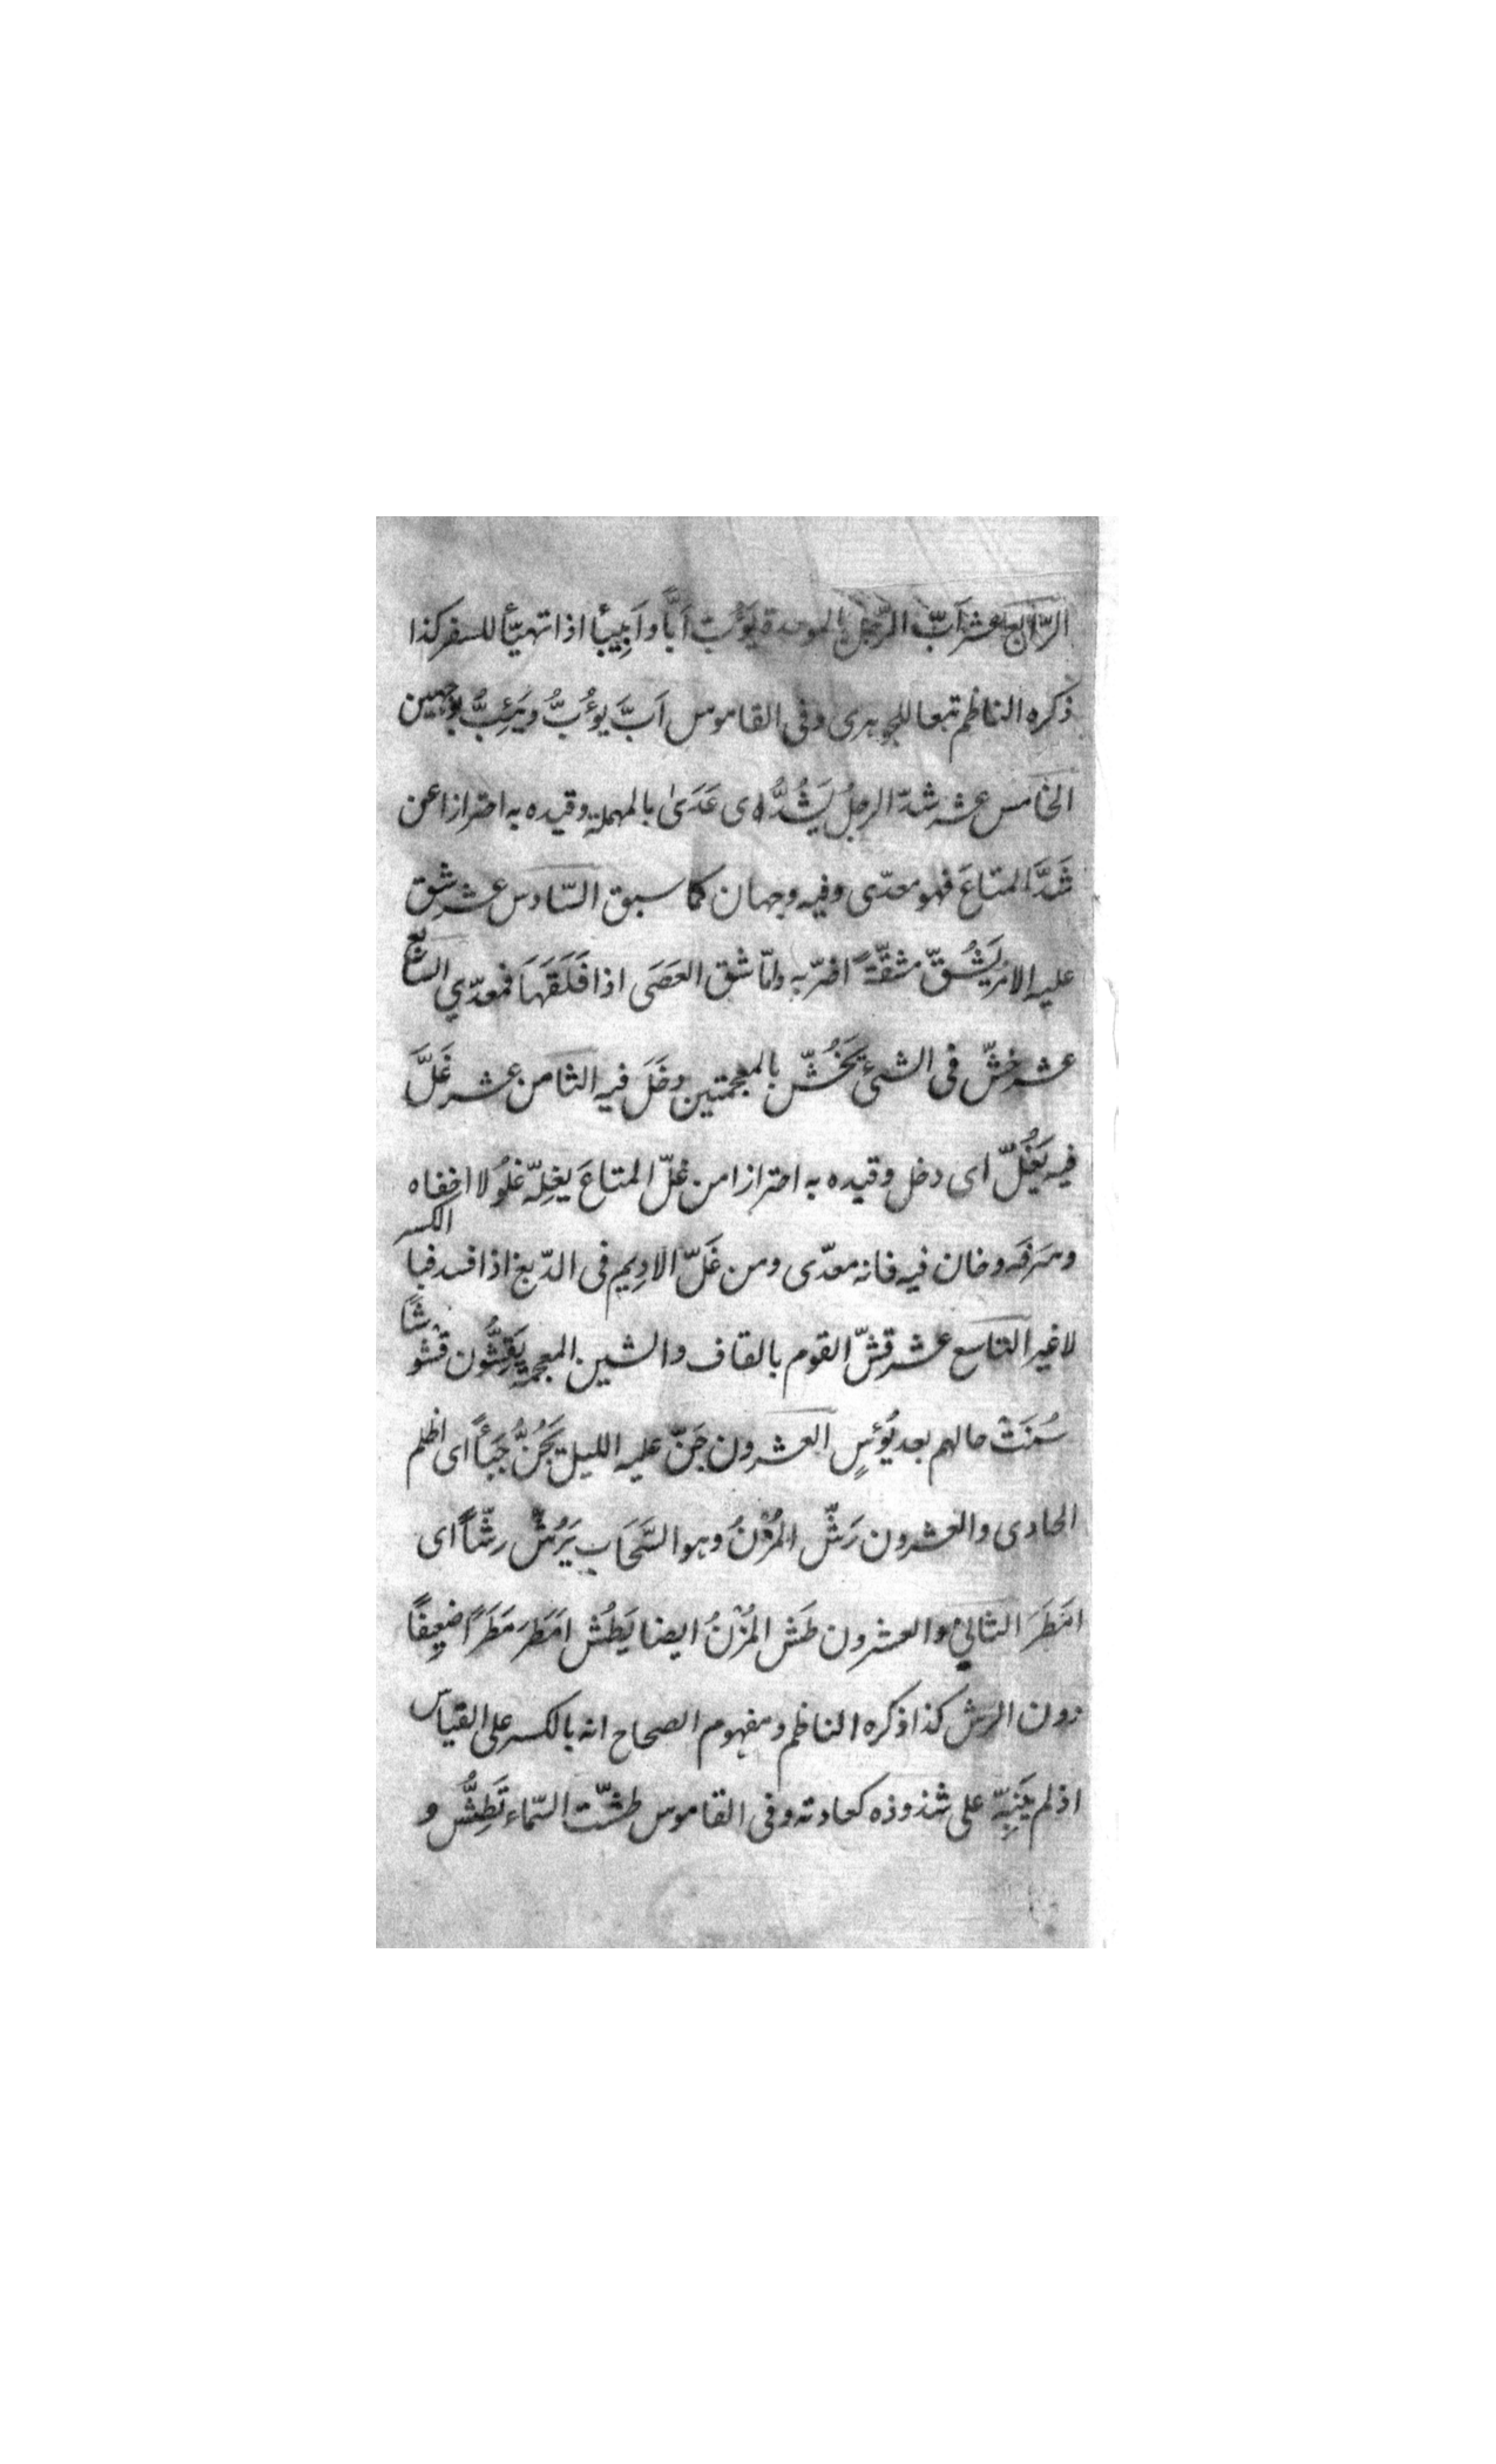 الرّابع عشر اَبّ الرّجل بالموحدة يَؤُبّ اَبًّا واَبِيبًا اذا تهيّأ للسفر كذا
ذكره الناظم تبعا للجوهرى وفى القاموس اَبَّ يؤُبُّ ويَئِبُّ بوجهين
الخامس عشر شدّ الرجلُ يَشُدُّ اى عَدَىٰ بالمهملة وقيده به احترازا عن
شَدَّ المتاعَ فهو معدّى وفيه وجهان كما سبق السّادس عشر شق
عليه الامْر يَشُقّ مشقّةً اضرّ به وامّا شق العَصَى اذا فَلَقَهَا فمعدّي السابع
عشر خشّ فى الشئ يَخُشّ بالمعجمتين دخَلَ فيه الثامن عشر غَلَّ
فيه يَغُلّ اى دخل وقيده به احترازا من غلّ المتاعَ يغِلّه غلُولا اخفاه
وسَرقَه وخان فيه فانه معدّى ومن غَلّ الاديم فى الدّبغ اذا فسد فبا الكسر
لا غير التاسع عشر قشّ القوم بالقاف والشين المعجمة يَقِشُّون قشو شًا
سُمنَتْ حالهم بعد يُؤسٍ العشرون جَنّ عليه الليل يَجُنُّ جَنًّا اى اظلم
الحادى والعشرون رَشّ المُزْنُ وهو السَّحَاب يَرُشّ رشّاً اى
امَطَرَ الثاني والعشرون طَش المُزْنُ ايضا يَطُش امَطَر مَطَرًا ضعِيفًا
دون الرش كذا ذكره الناظم ومفهوم الصحاح انه بالكسر على القياس
اذ لم يَنبِّه على شذوذه كعادته وفى القاموس طشّت السّماء تَطِشُّ و